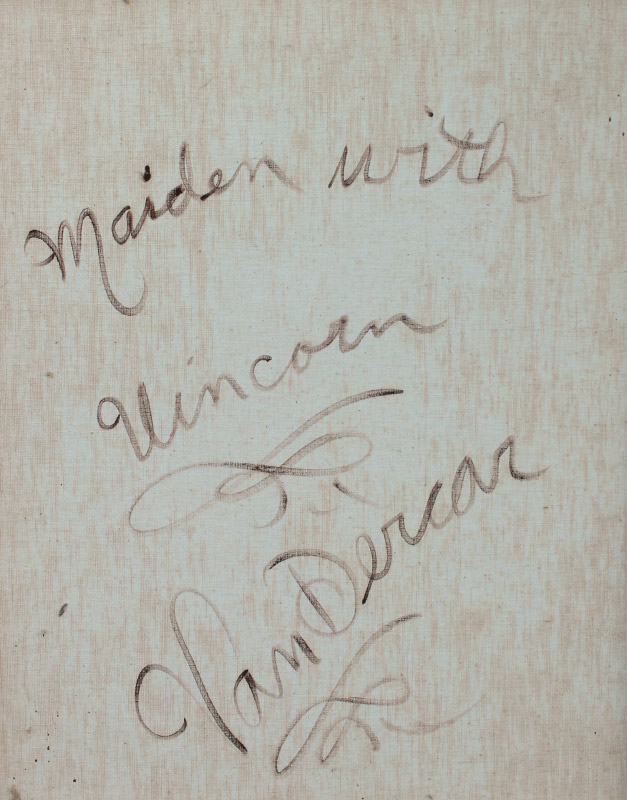 Maiden with
Uincorn
Van Dercar